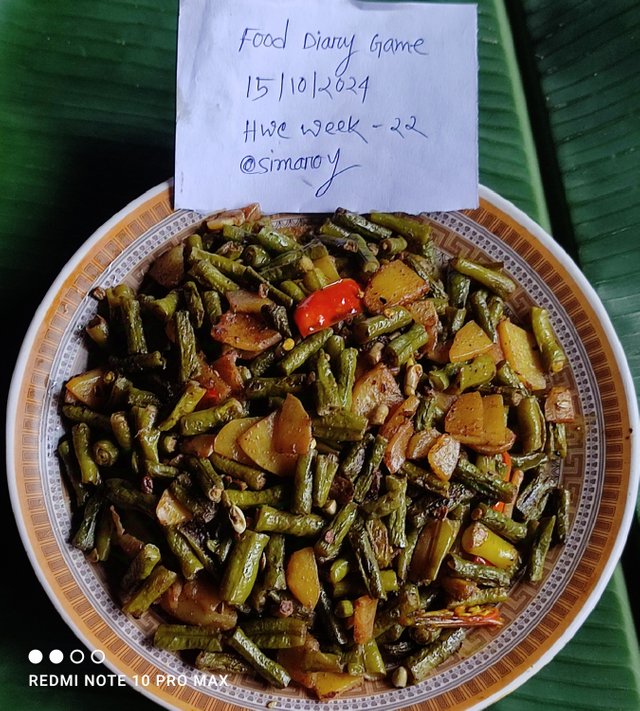 Food Diary Game
15/10/2024
HWC Week - 22
@simaroy
REDMI NOTE 10 PRO MAX